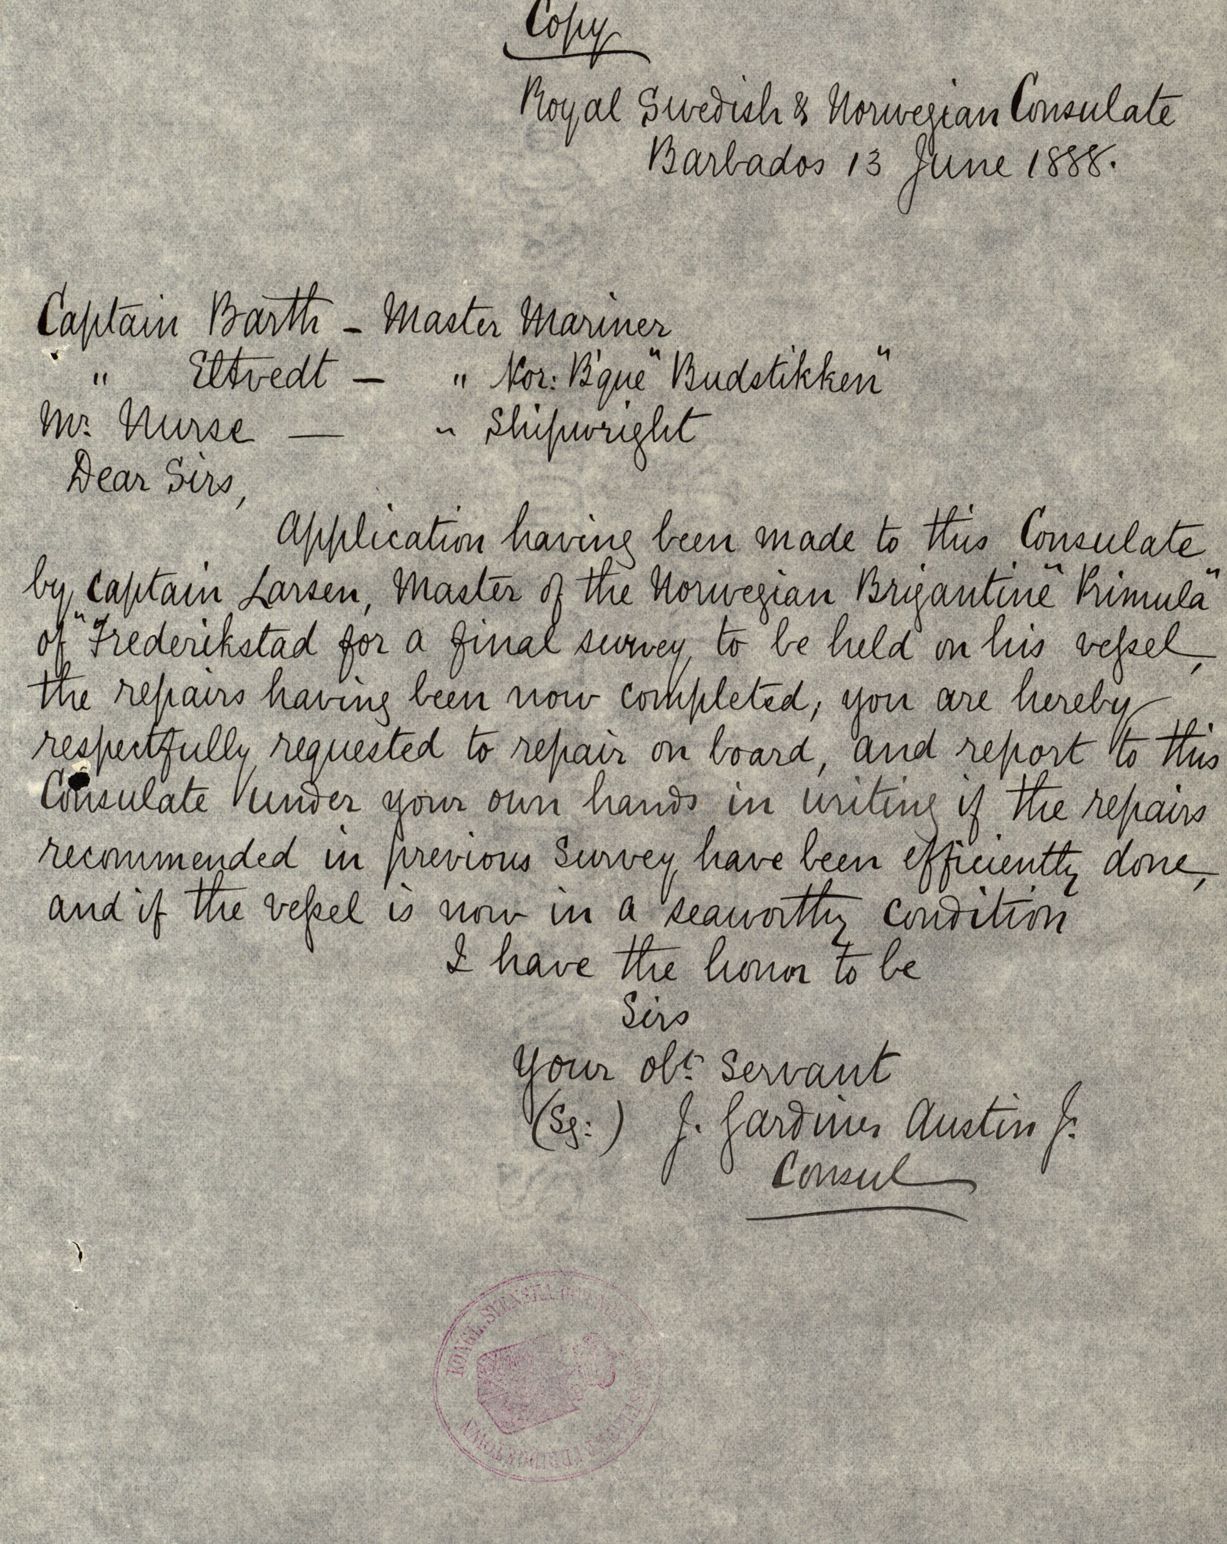 Copy
Royal Swedish & Norwegian Consulate
Barbados 13 June 1888.
Captain Barth - Master Mariner
" Eltvedt - " Nor: B'que "Budstikken"
Mr. Nurse — " Shipwright
Dear Sirs,
Application having been made to this Consulate
by Captain Larsen, Master of the Norwegian Brigantine "Primula"
of "Frederikstad for a final survey to be held on his vessel,
the repairs having been now completed, you are hereby
respectfully requested to repair on board, and report to this
Consulate under your own hands in writing if the repairs
recommended in previous Survey have been efficiently done,
and if the vessel is now in a seaworthy condition
I have the honor to be
Sirs
Your obt. Servant
(Sg:) J. Gardiner Austin Jr.
Consul
KONGL. SVENSKA OCH NORSKA
BRIDGETOWN